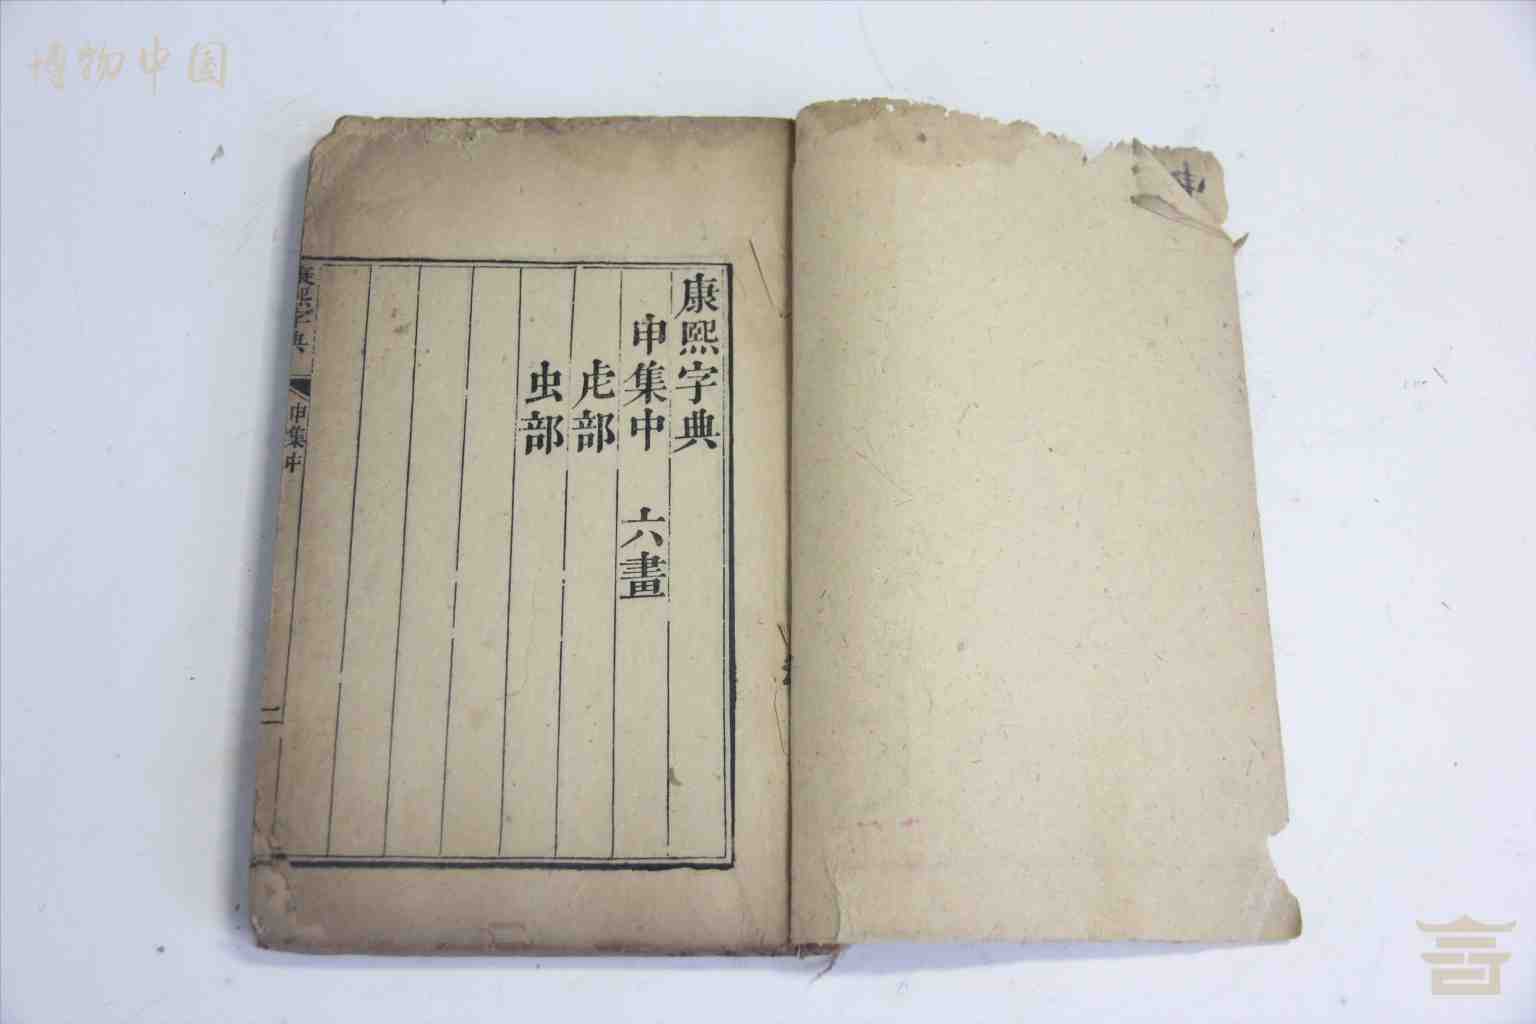 博物中国
康熙字典
申集中 六畫
虍部
虫部
康熙字典
申集中
二